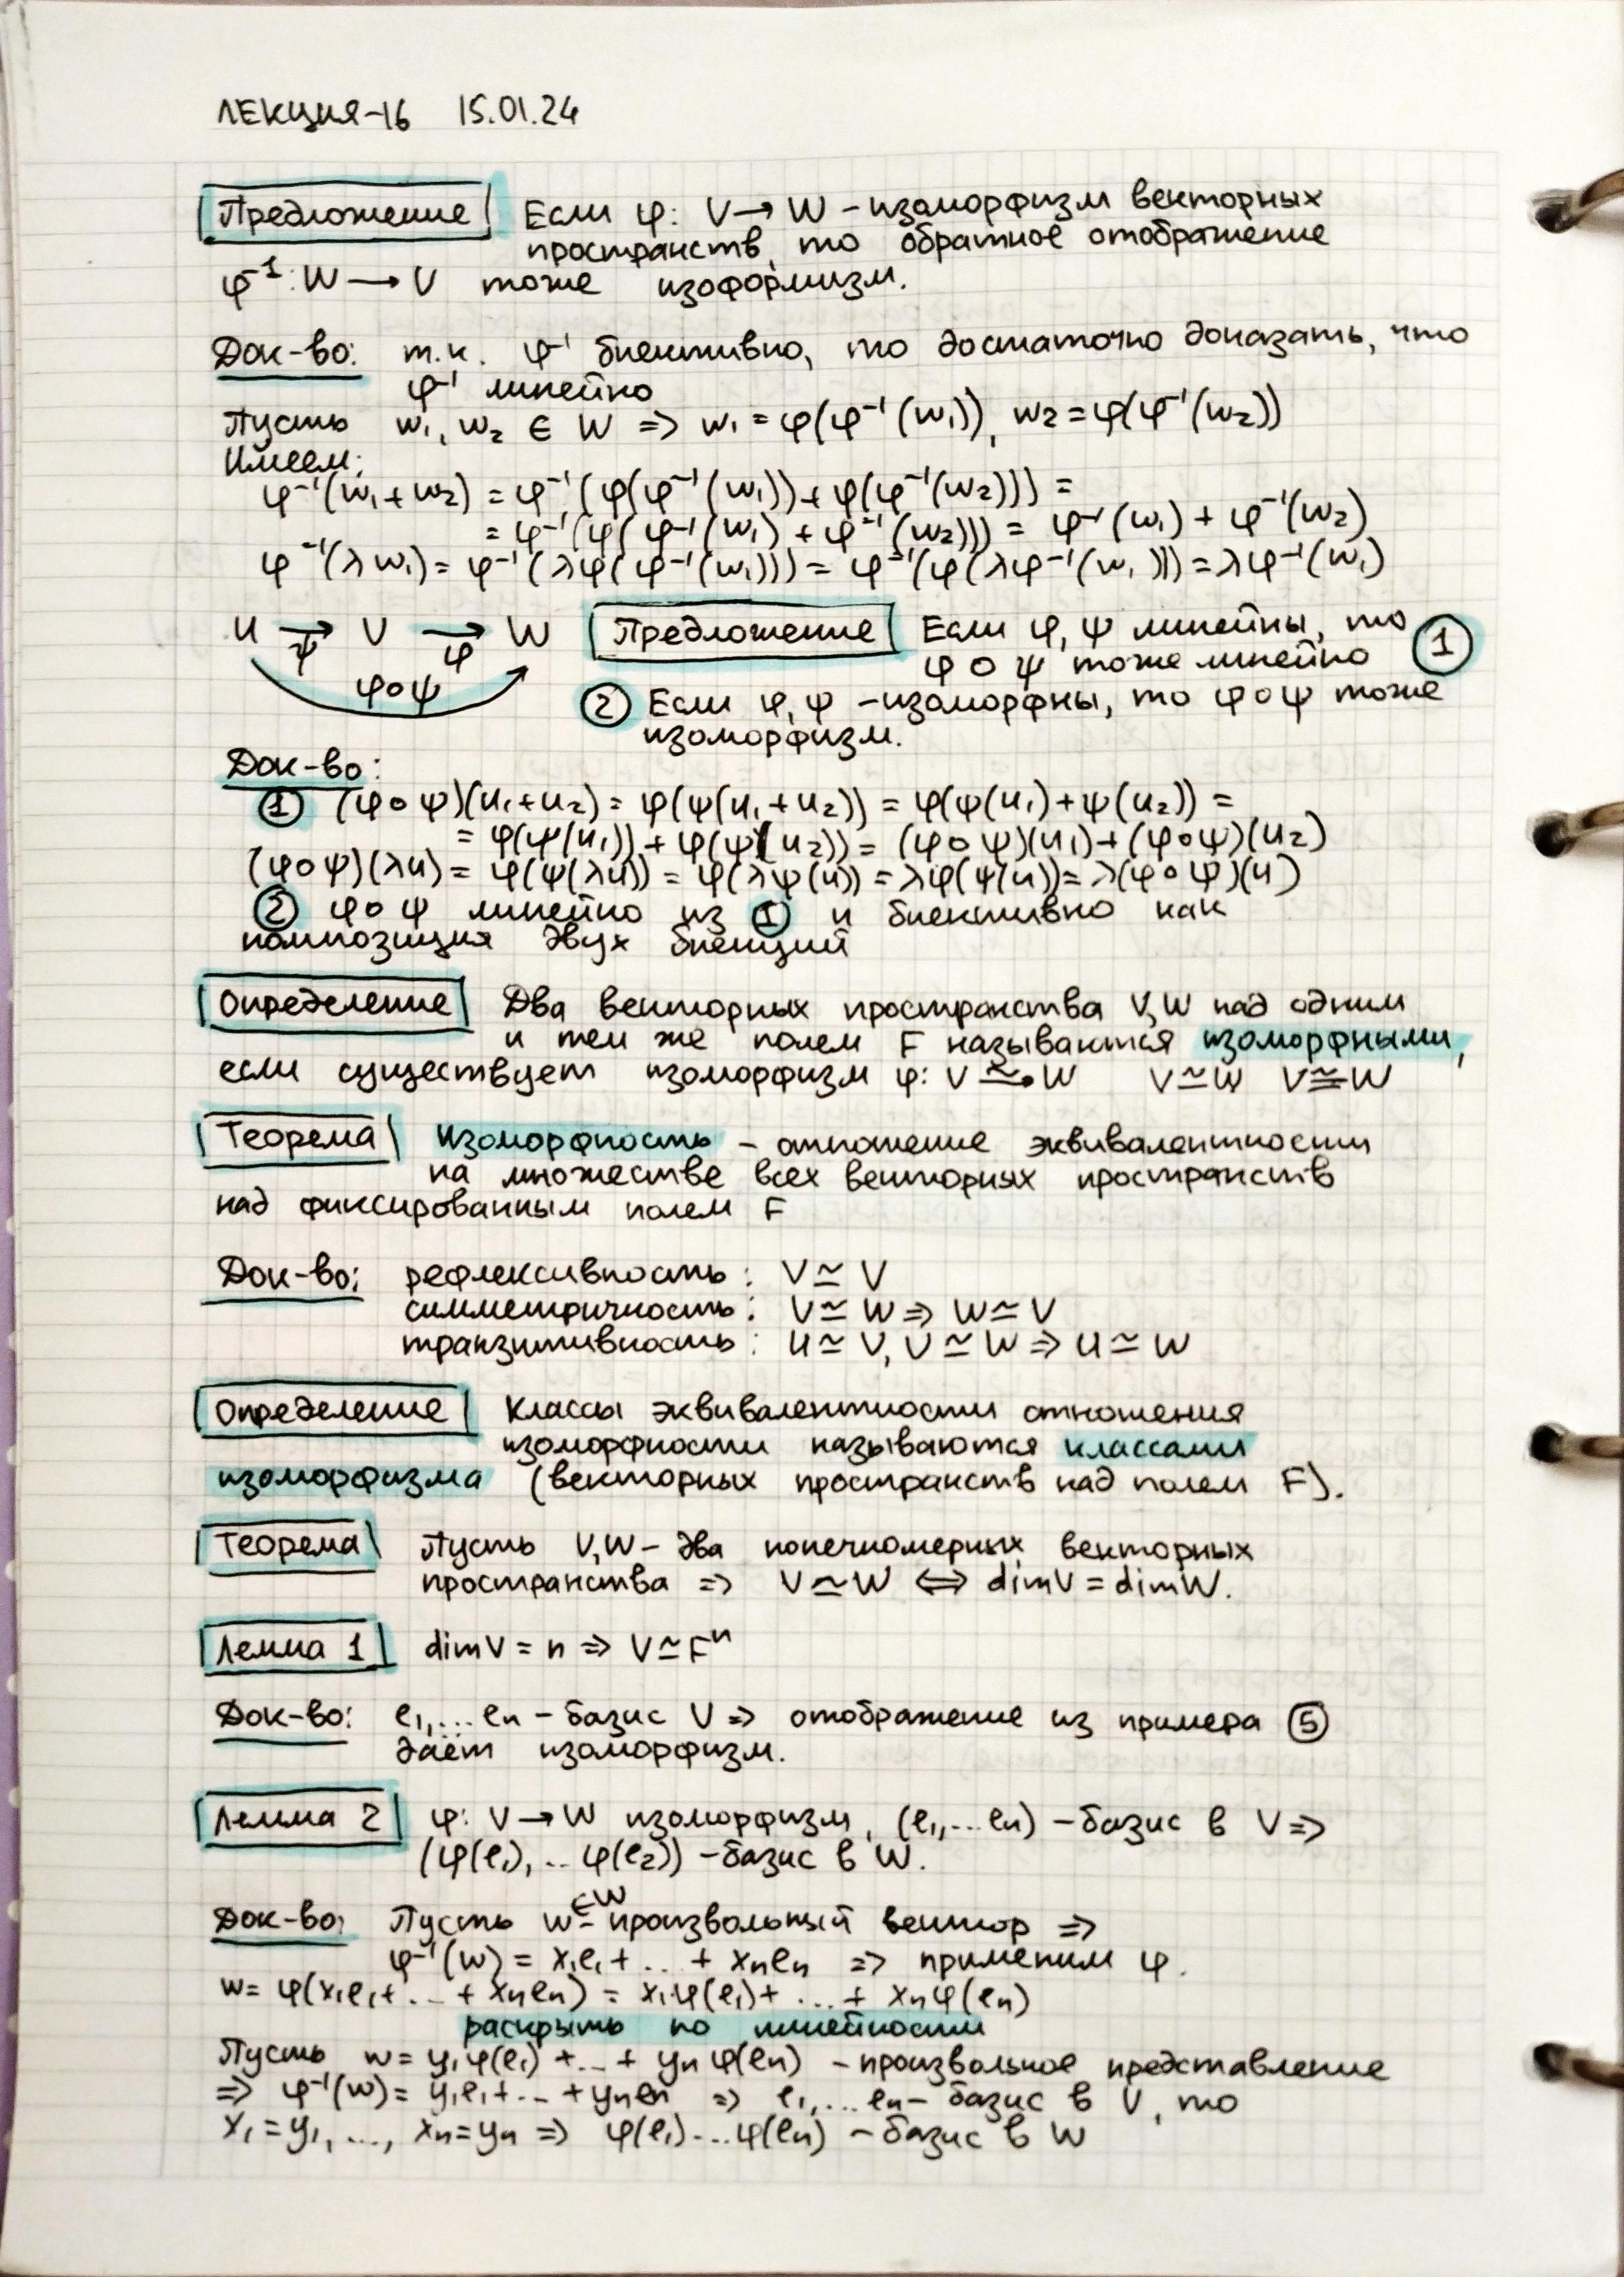 ЛЕКЦИЯ-16 15.01.24
Предложение Если φ: V → W – изоморфизм векторных
пространств, то обратное отображение
φ⁻¹: W → V тоже изоформизм.
Док-во: т.к. φ⁻¹ биективно, то достаточно доказать, что
φ⁻¹ линейно
Пусть w₁, w₂ ∈ W => w₁ = φ(φ⁻¹(w₁)), w₂ = φ(φ⁻¹(w₂))
Имеем:
φ⁻¹(w₁+w₂) = φ⁻¹(φ(φ⁻¹(w₁))+φ(φ⁻¹(w₂))) =
= φ⁻¹(φ(φ⁻¹(w₁) + φ⁻¹(w₂))) = φ⁻¹(w₁) + φ⁻¹(w₂)
φ⁻¹(λw₁) = φ⁻¹(λφ(φ⁻¹(w₁))) = φ⁻¹(φ(λφ⁻¹(w₁))) = λφ⁻¹(w₁)
U → V → W Предложение Если φ, ψ линейны, то ①
ψ φ φ∘ψ тоже линейно
φ∘ψ ② Если φ, ψ – изоморфны, то φ∘ψ тоже
изоморфизм.
Док-во:
① (φ∘ψ)(u₁+u₂) = φ(ψ(u₁+u₂)) = φ(ψ(u₁)+ψ(u₂)) =
= φ(ψ(u₁)) + φ(ψ(u₂)) = (φ∘ψ)(u₁)+(φ∘ψ)(u₂)
(φ∘ψ)(λu) = φ(ψ(λu)) = φ(λψ(u)) = λφ(ψ(u)) = λ(φ∘ψ)(u)
② φ∘ψ линейно из ① и биективно как
композиция двух биекций
Определение Два векторных пространства V,W над одним
и тем же полем F называются изоморфными,
если существует изоморфизм φ: V ⥲ W V≃W V≅W
Теорема Изоморфность – отношение эквивалентности
на множестве всех векторных пространств
над фиксированным полем F
Док-во: рефлексивность: V ≃ V
симметричность: V ≃ W => W ≃ V
транзитивность: U ≃ V, V ≃ W => U ≃ W
Определение Классы эквивалентности отношения
изоморфности называются классами
изоморфизма (векторных пространств над полем F).
Теорема Пусть V,W – два конечномерных векторных
пространства => V ≃ W <=> dimV = dimW.
Лемма 1 dimV = n => V ≃ Fⁿ
Док-во: e₁,... eₙ – базис V => отображение из примера ⑤
даёт изоморфизм.
Лемма 2 φ: V → W изоморфизм, (e₁,... eₙ) – базис в V =>
(φ(e₁), .. φ(e₂)) – базис в W.
Док-во: Пусть w ∈W – произвольный вектор =>
φ⁻¹(w) = x₁e₁ + ... + xₙeₙ => применим φ.
w = φ(x₁e₁+ ... + xₙeₙ) = x₁φ(e₁) + ... + xₙφ(eₙ)
раскрыть по линейности
Пусть w = y₁φ(e₁) + ... + yₙφ(eₙ) – произвольное представление
=> φ⁻¹(w) = y₁e₁+ ... +yₙeₙ => e₁,... eₙ – базис в V, то
x₁=y₁, ..., xₙ=yₙ => φ(e₁)...φ(eₙ) – базис в W